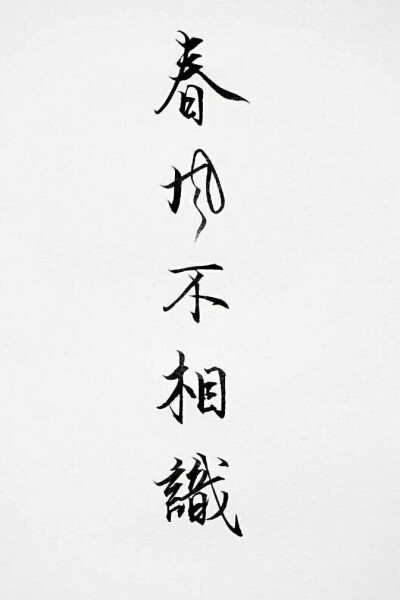 春風不相識